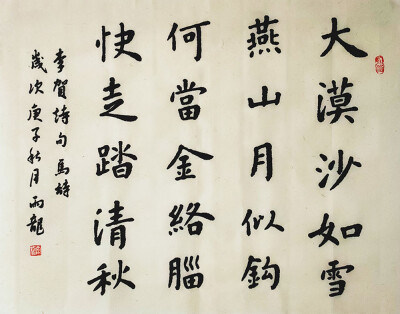 大漠沙如雪
燕山月似鈎
何當金絡腦
快走踏清秋
李賀詩句馬詩
歲次庚子秋月雨龍